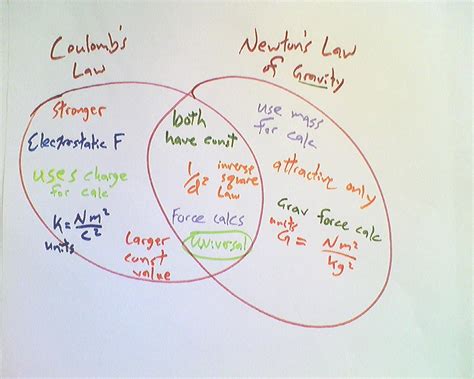 Coulomb's
Law
Newton's Law
of Gravity
Stronger
Electrostatic F
uses charge
for calc
K = Nm²/C²
units
Larger
const
value
both
have const
1/d² inverse
square
Law
Force calcs
Universal
use mass
for calc
attractive only
Grav force calc
units
G = Nm²/kg²